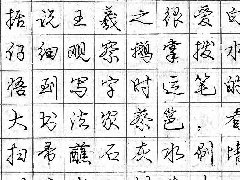 据说王羲之很爱
仔细观察鹅掌拨水
悟到写字时运笔的
大书法家蔡邕，看
扫帚蘸石灰水刷墙